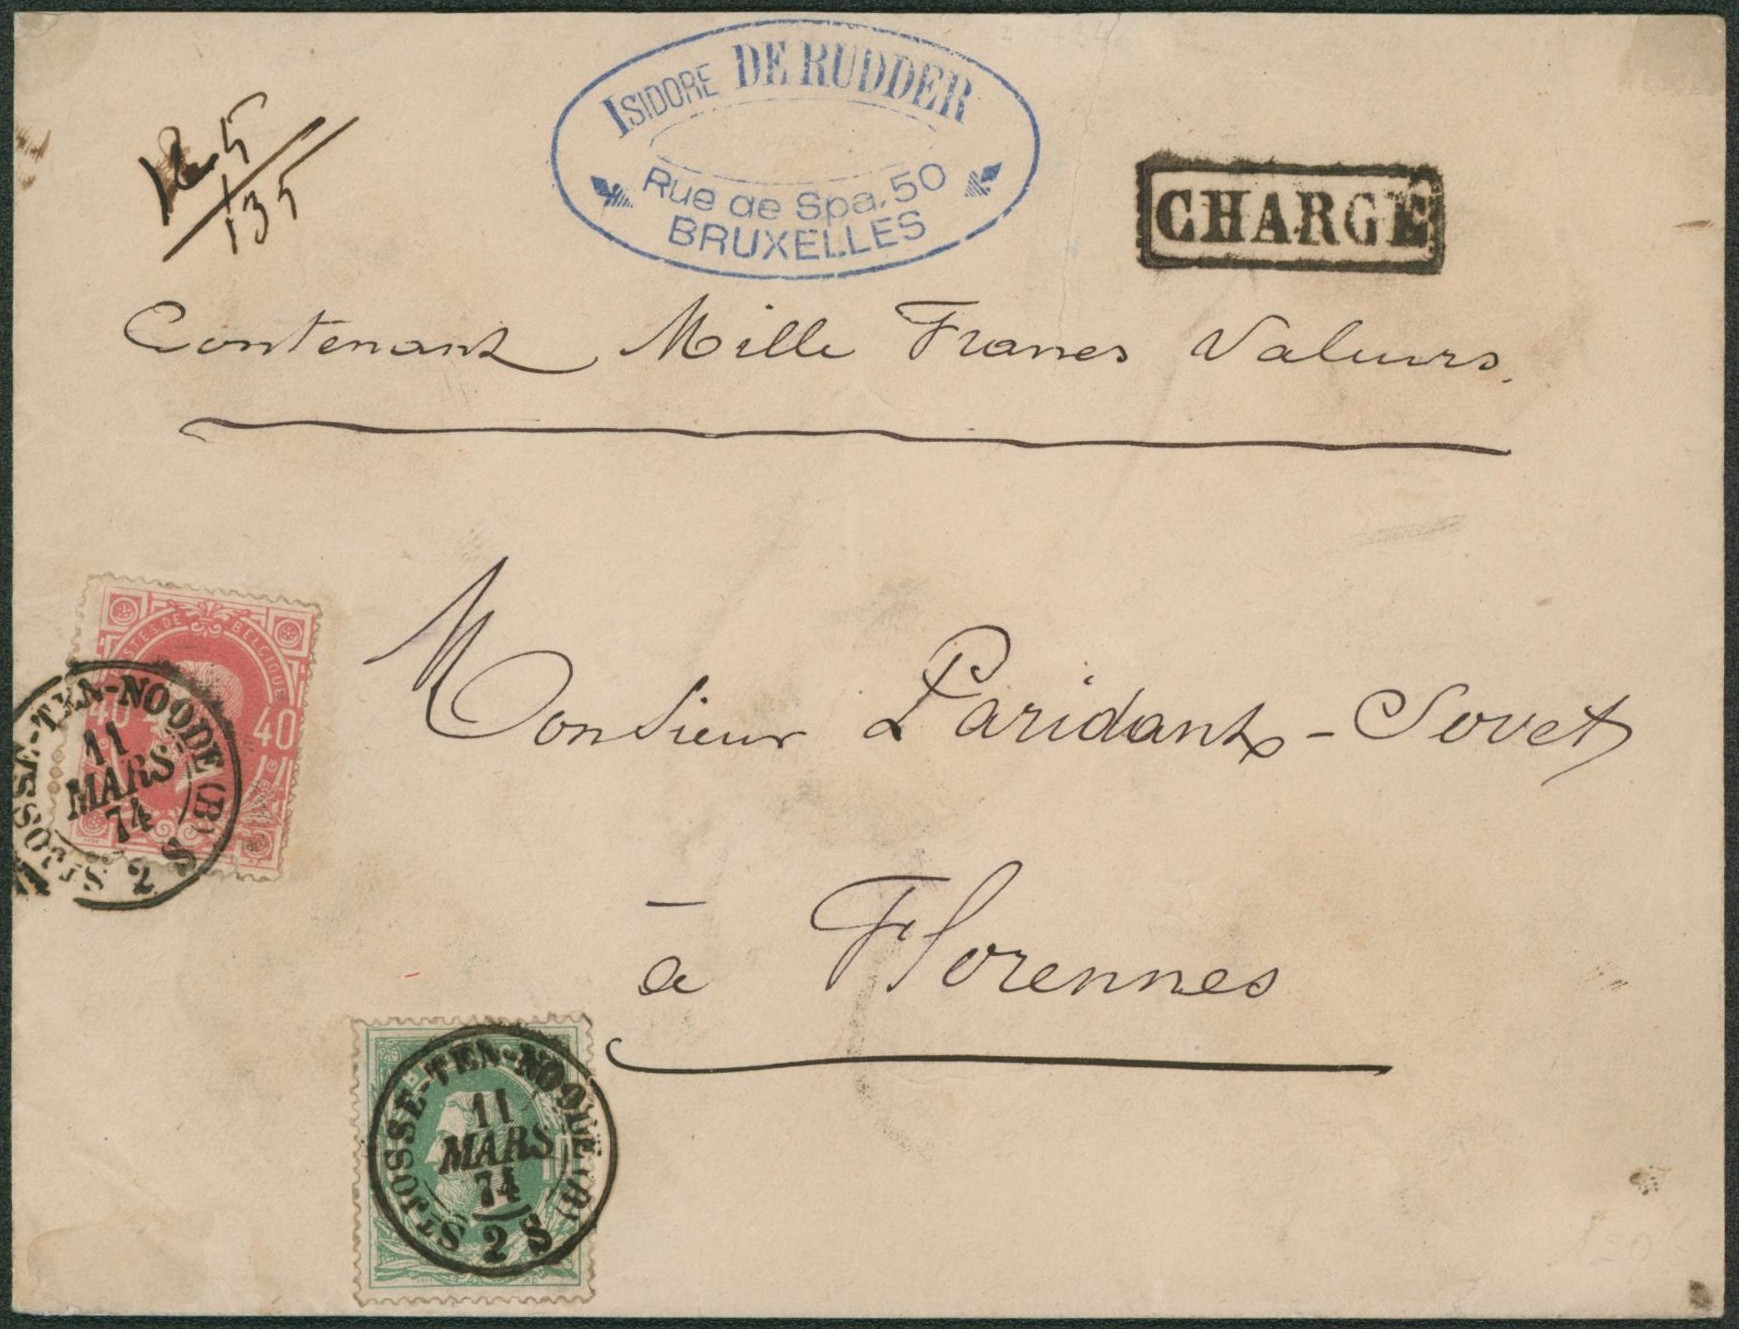 ISIDORE DE RUDDER
Rue de Spa. 50
BRUXELLES
CHARGÉ
135
Contenant Mille Francs Valeurs.
Monsieur Paridant - Sovet
à Florennes
POSTES DE BELGIQUE
40 40
ST JOSSE-TEN-NOODE (B)
11
MARS
74
2 S
ST JOSSE-TEN-NOODE (B)
11
MARS
74
S 2 S